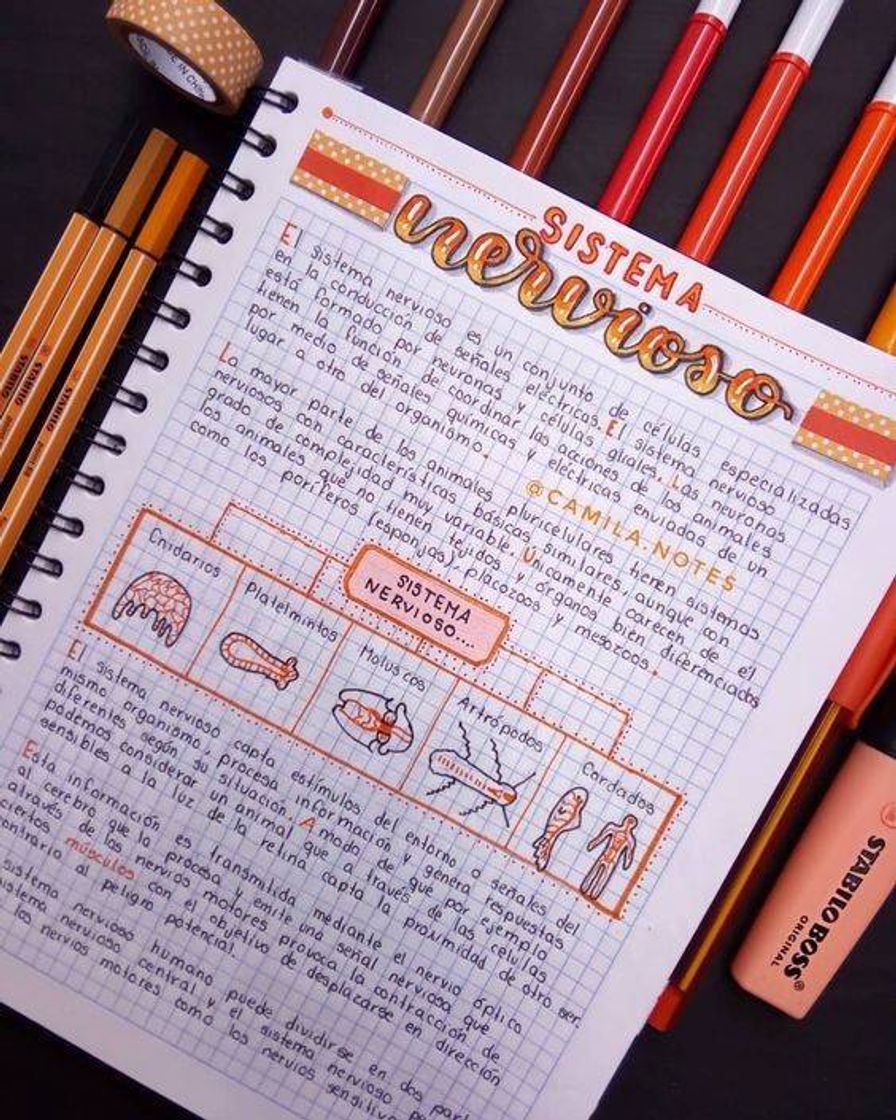 SISTEMA
nervioso
El sistema nervioso es un conjunto de células especializadas
en la conducción de señales eléctricas. El sistema nervioso
está formado por neuronas y células gliales. Las neuronas
tienen la función de coordinar las acciones de los animales
por medio de señales químicas y eléctricas enviadas de un
lugar a otro del organismo.
@CAMILA.NOTES
La mayor parte de los animales pluricelulares tienen sistemas
nerviosos con características básicas similares, aunque con
grado de complejidad muy variable. Únicamente carecen de él
los animales que no tienen tejidos y órganos bien diferenciados
como los poríferos (esponjas), placozoos y mesozoos.
SISTEMA
NERVIOSO....
Cnidarios
Platelmintos
Moluscos
Artrópodos
Cordados
El sistema nervioso capta estímulos del entorno o señales del
mismo organismo, procesa información y genera respuestas
diferentes según su situación. A modo de que por ejemplo
podemos considerar un animal que a través de las células
sensibles a la luz de la retina capta la proximidad de otro ser.
Esta información es transmitida mediante el nervio óptico
al cerebro que la procesa y emite una señal nerviosa que
através de los nervios motores provoca la contracción de
ciertos músculos con el objetivo de desplazarse en dirección
contraria al peligro potencial.
sistema nervioso humano puede dividirse en dos
sistema nervioso central y el sistema nervioso
los nervios motores como los nervios
STABILO
STABILO
STABILO
STABILO BOSS
ORIGINAL